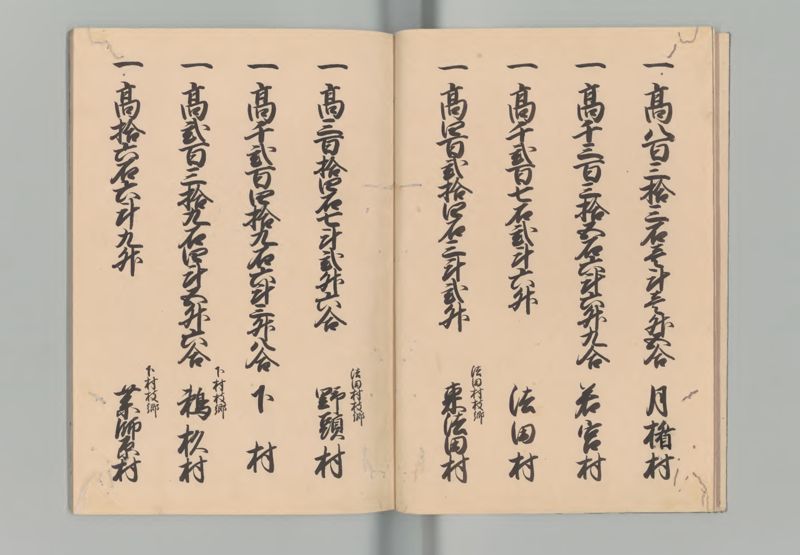 一 高八百三拾三石壱斗三升五合 月楯村
一 高千三百三拾五石六斗六升九合 若宮村
一 高千弐百七石弐斗六升 法田村
法田村枝郷
一 高四百弐拾四石三斗弐升 東法田村
法田村枝郷
一 高三百拾四石七斗弐升六合 野頭村
一 高千弐百四拾九石六斗三升八合 下村
下村枝郷
一 高弐百三拾九石四斗五升六合 鵜杉村
下村枝郷
一 高拾六石六斗九升 薬師原村